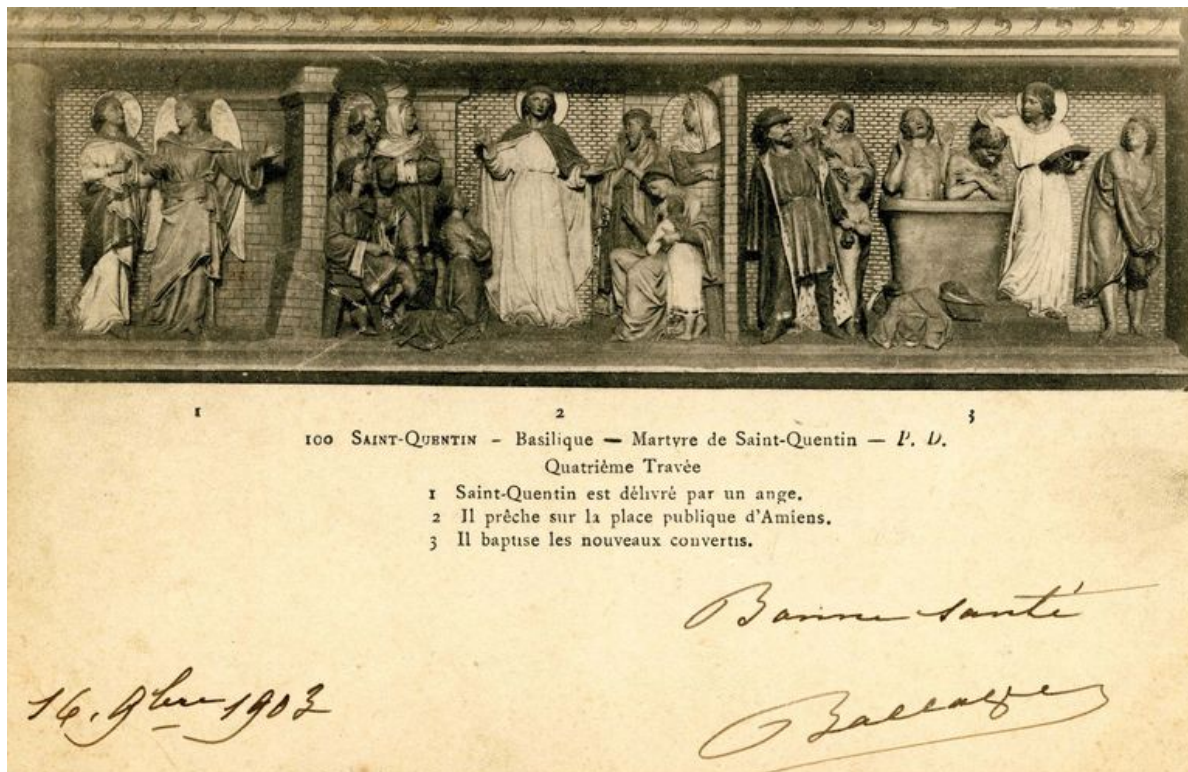 1 2 3
100 SAINT-QUENTIN - Basilique — Martyre de Saint-Quentin — P. D.
Quatrième Travée
1 Saint-Quentin est délivré par un ange.
2 Il prêche sur la place publique d'Amiens.
3 Il baptise les nouveaux convertis.
Bonne santé
16. 9bre 1903